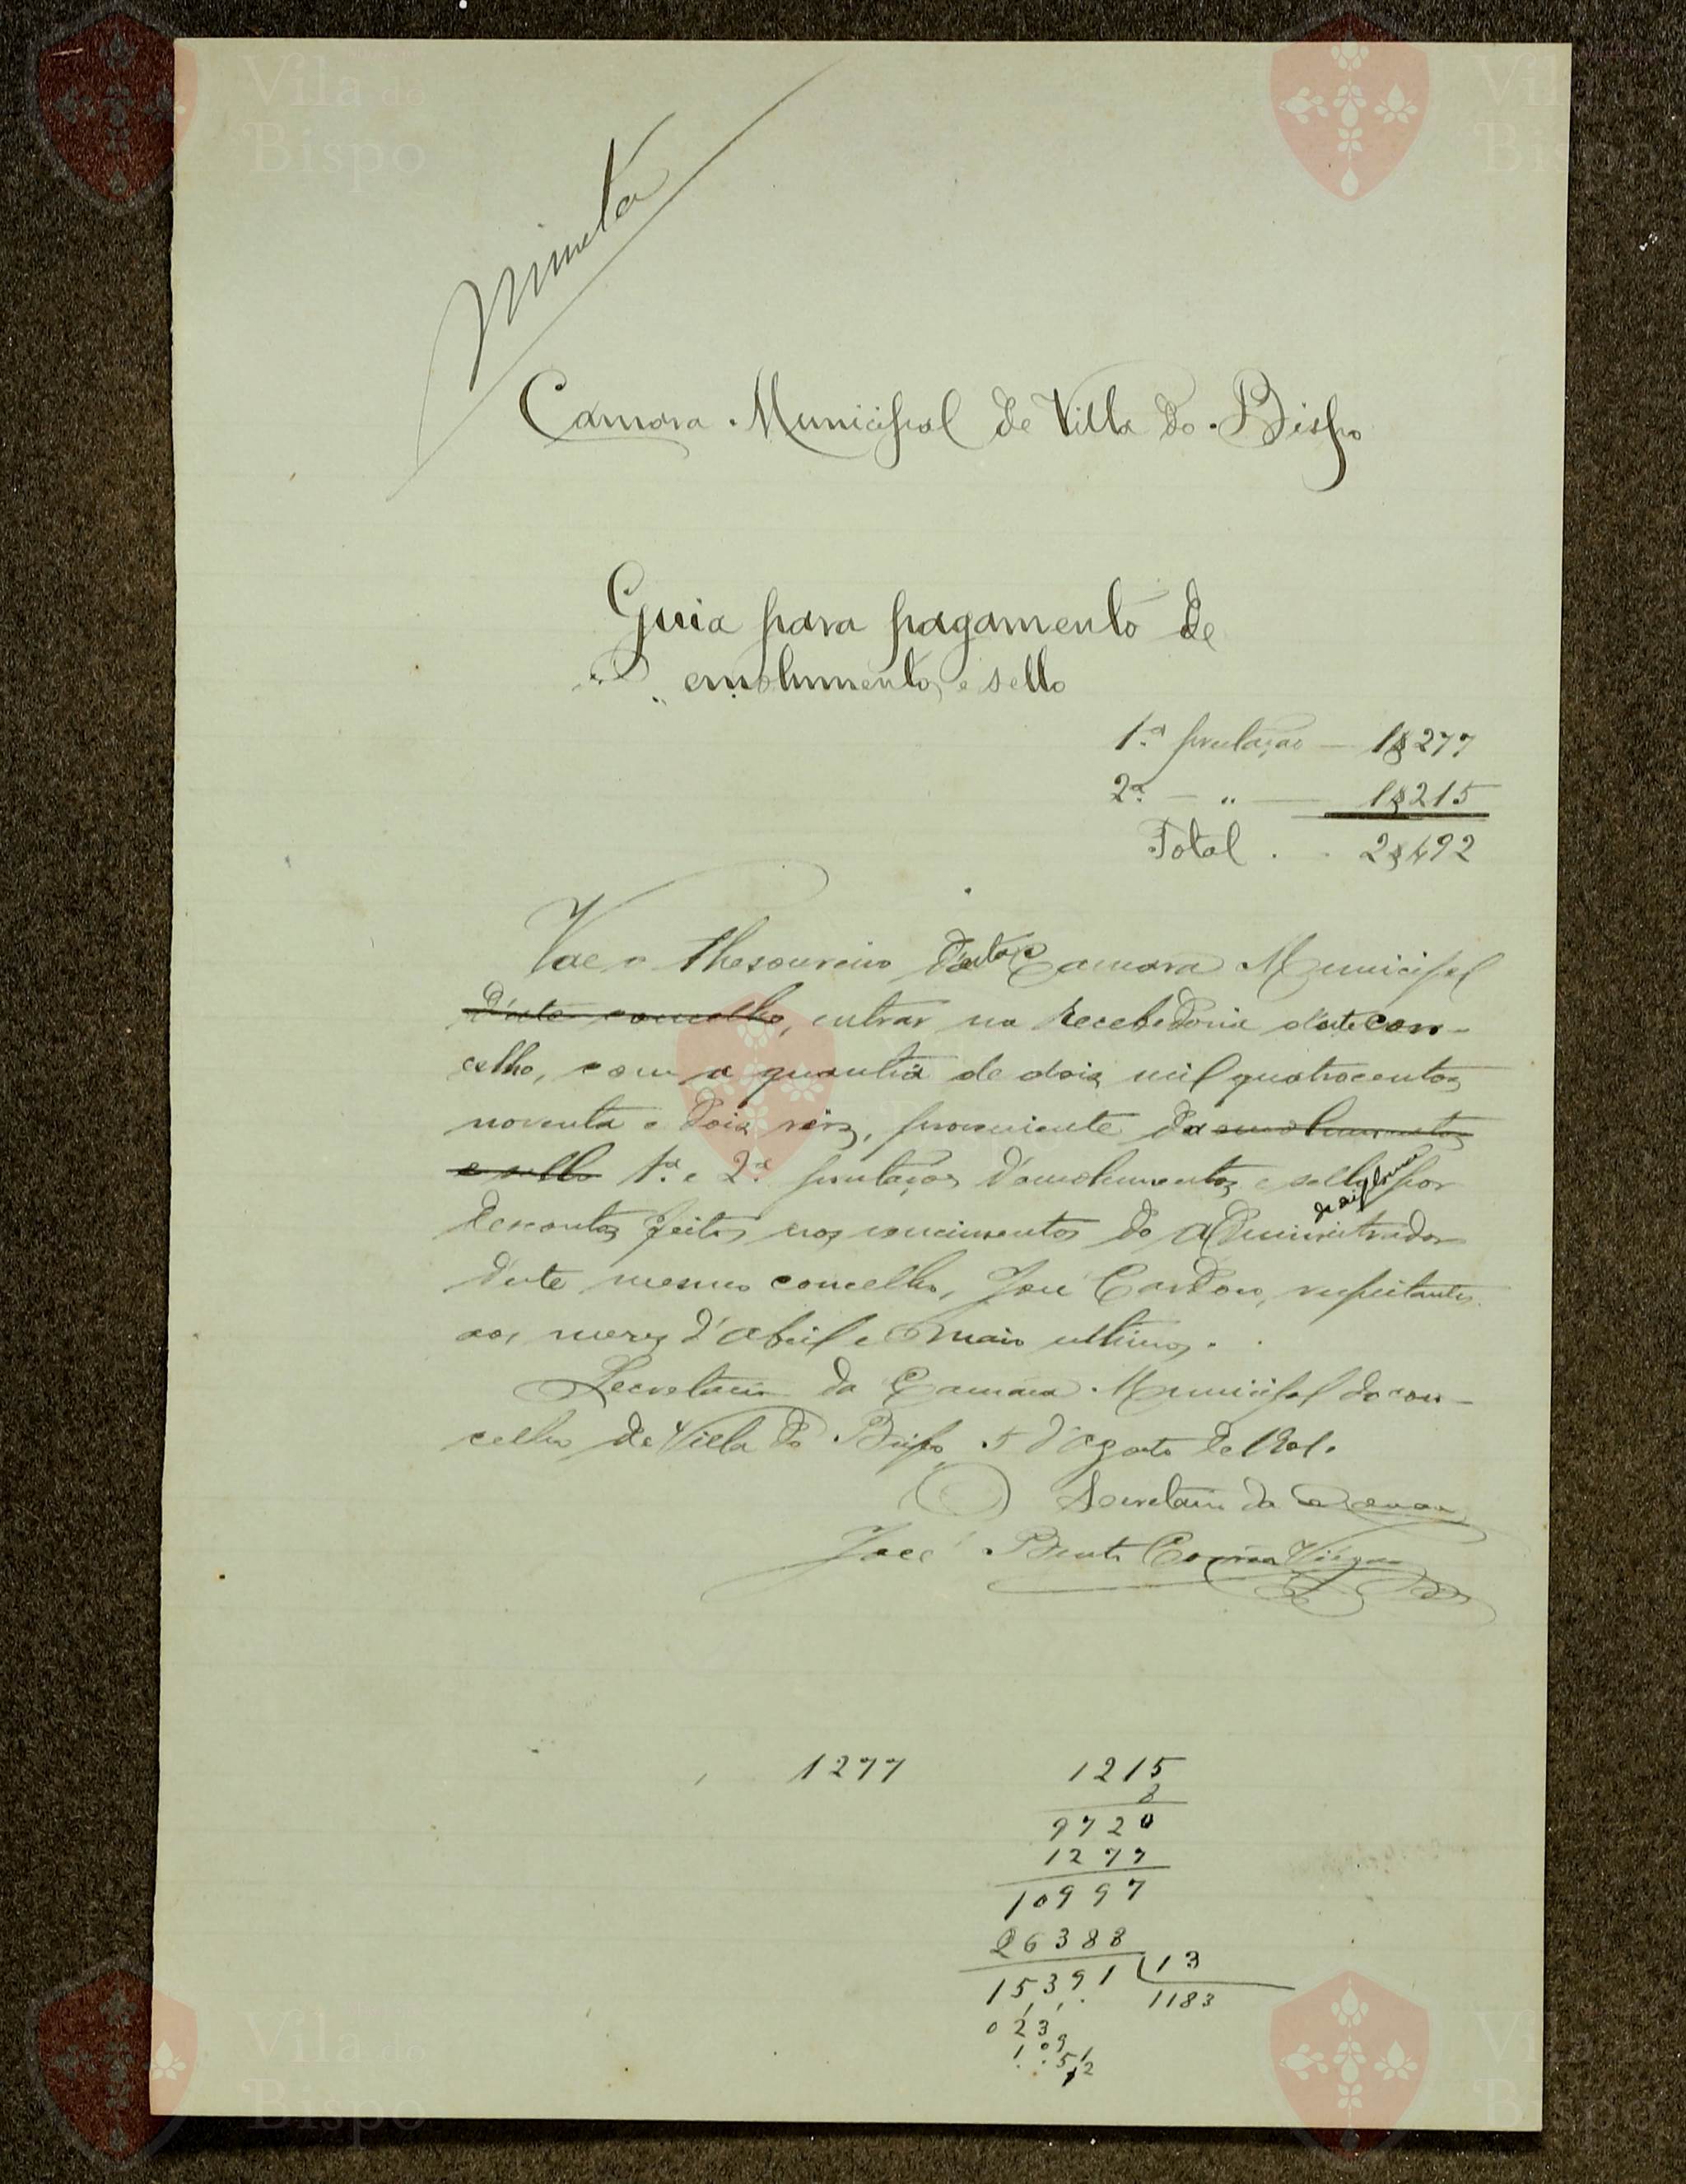 Minuta
Camara Municipal de Villa do Bispo
Guia para pagamento de
emolumentos e sello
1.ª prestação — 1$277
2.ª — " — 1$215
Total . . 2$492
Vae o thesoureiro d'esta Camara Municipal
d'este concelho, entrar na recebedoria d'este con-
celho, com a quantia de dois mil quatrocentos
noventa e dois reis, proveniente da emolumentos
e sello 1.ª e 2.ª prestações d'emolumentos e sello de diploma por
descontos feitos nos vencimentos do administrador
d'este mesmo concelho, José Cardoso, respeitantes
aos mezes d'Abril e Maio ultimos.
Secretaria da Camara Municipal do con-
celho de Villa do Bispo 5 d'Agosto de 1901.
O Secretario da Camara
José Bento Corrêa Viégas
1277
1215
8
9720
1277
10997
26388
15391 13
1183
023
109
51
12
Vila do
Bispo